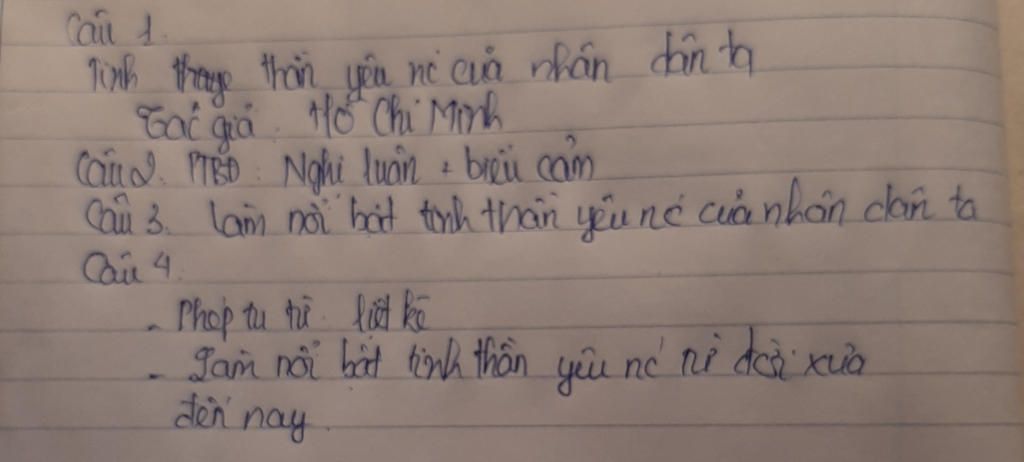 Câu 1.
Tinh thần yêu nc của nhân dân ta
Tác giả: Hồ Chí Minh
Câu 2. PTBĐ: Nghị luận + biểu cảm
Câu 3. Làm nổi bật tinh thần yêu nc của nhân dân ta
Câu 4.
- Phép tu từ: liệt kê
- Làm nổi bật tinh thần yêu nc từ đời xưa
đến nay.